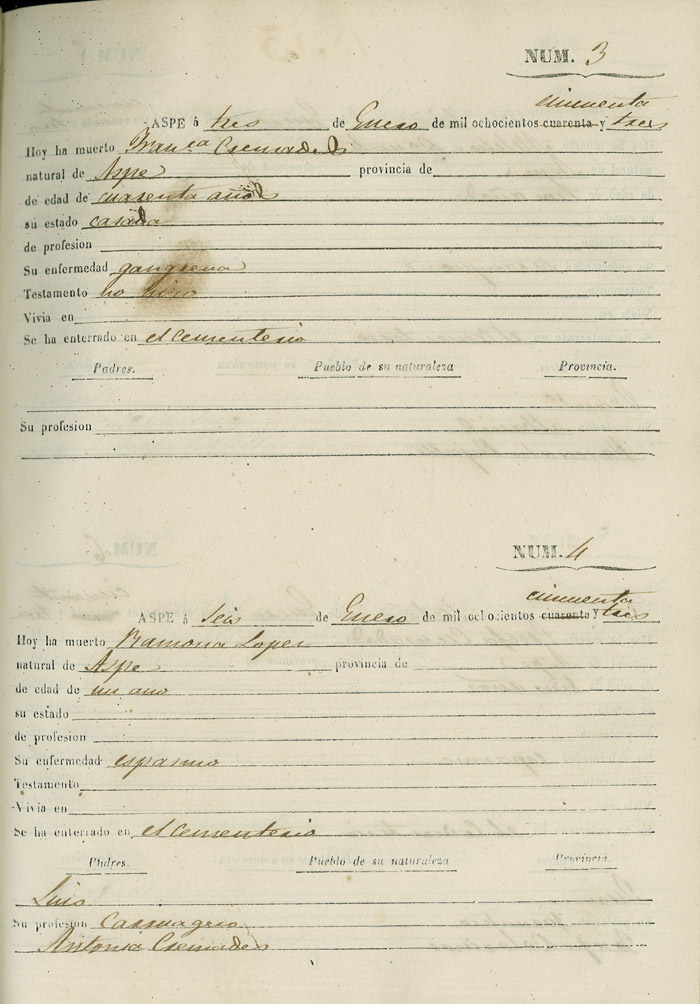 NUM. 3
cincuenta
ASPE á tres de Enero de mil ochocientos cuarenta y tres
Hoy ha muerto Fran.ca Cremades
natural de Aspe provincia de
de edad de cuarenta años
su estado casada
de profesion
Su enfermedad gangrena
Testamento no hizo
Vivia en
Se ha enterrado en el Cementerio
Padres. Pueblo de su naturaleza Provincia.
Su profesion
NUM. 4
cincuenta
ASPE á seis de Enero de mil ochocientos cuarenta y tres
Hoy ha muerto Ramona Lopez
natural de Aspe provincia de
de edad de un año
su estado
de profesion
Su enfermedad espasmo
Testamento
Vivia en
Se ha enterrado en el Cementerio
Padres. Pueblo de su naturaleza Provincia.
Luis
Su profesion
Antonia Cremades